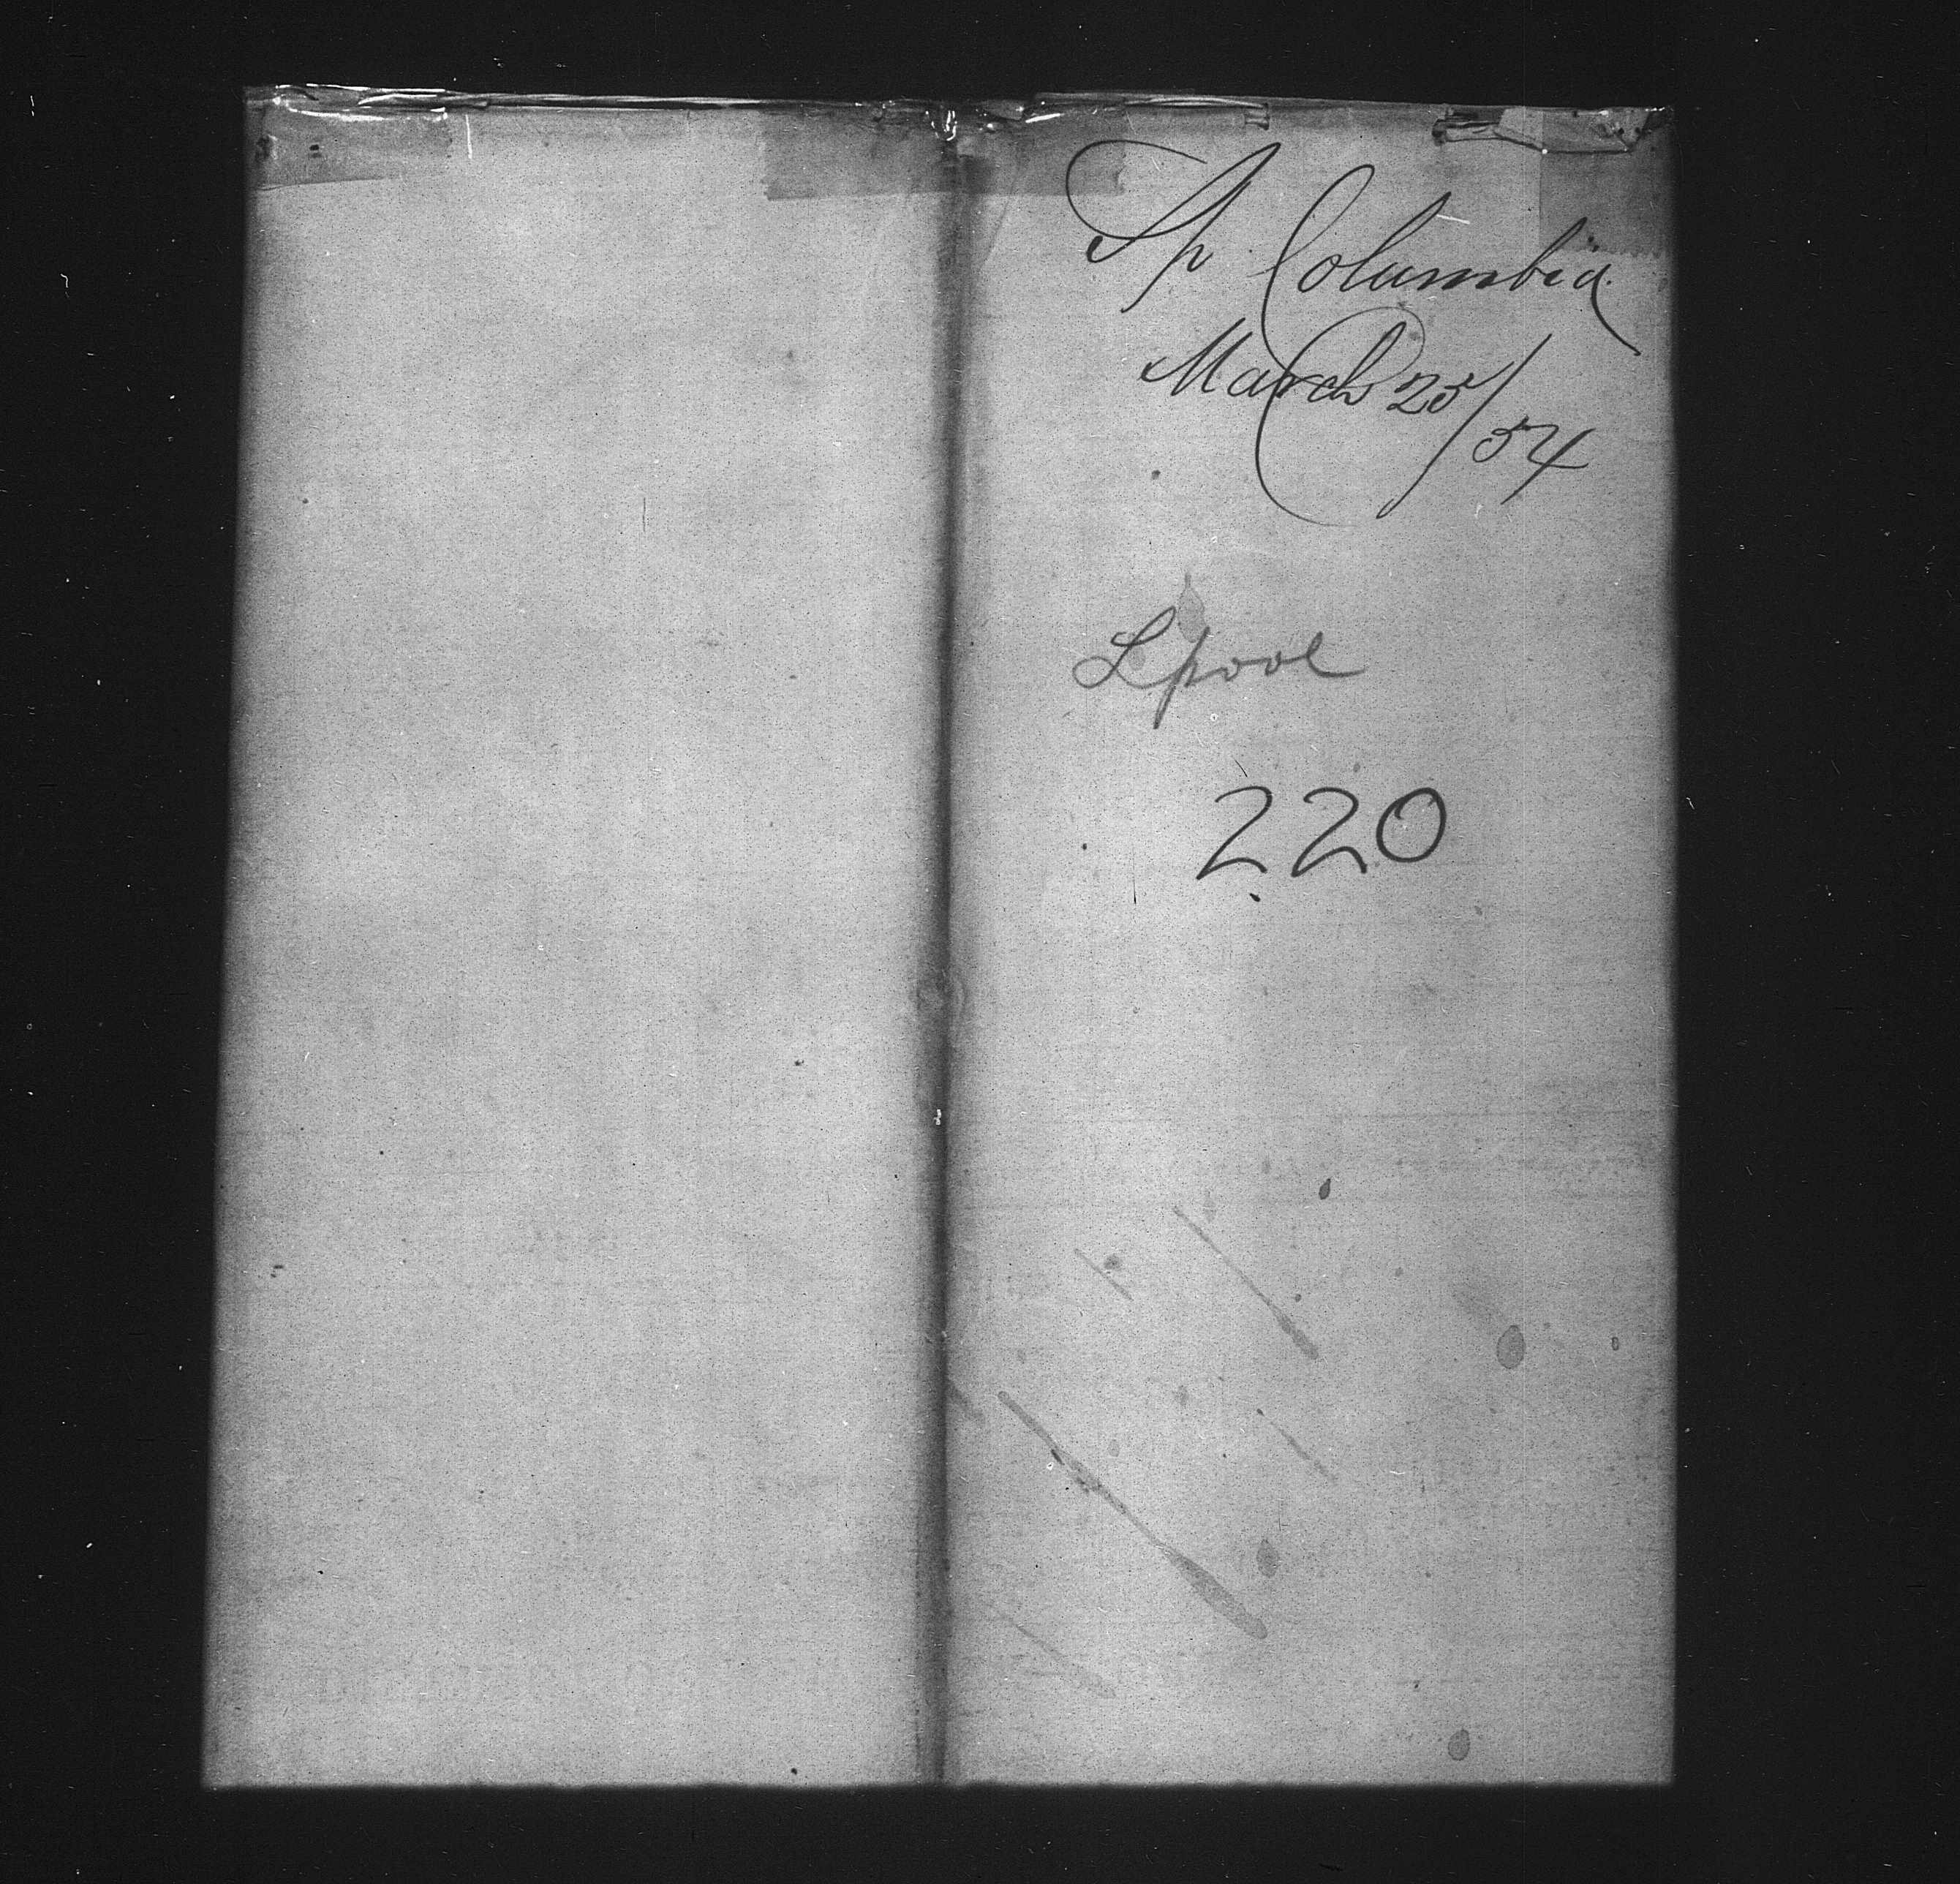 Sp Columbia
March 25/54
Lpool
220